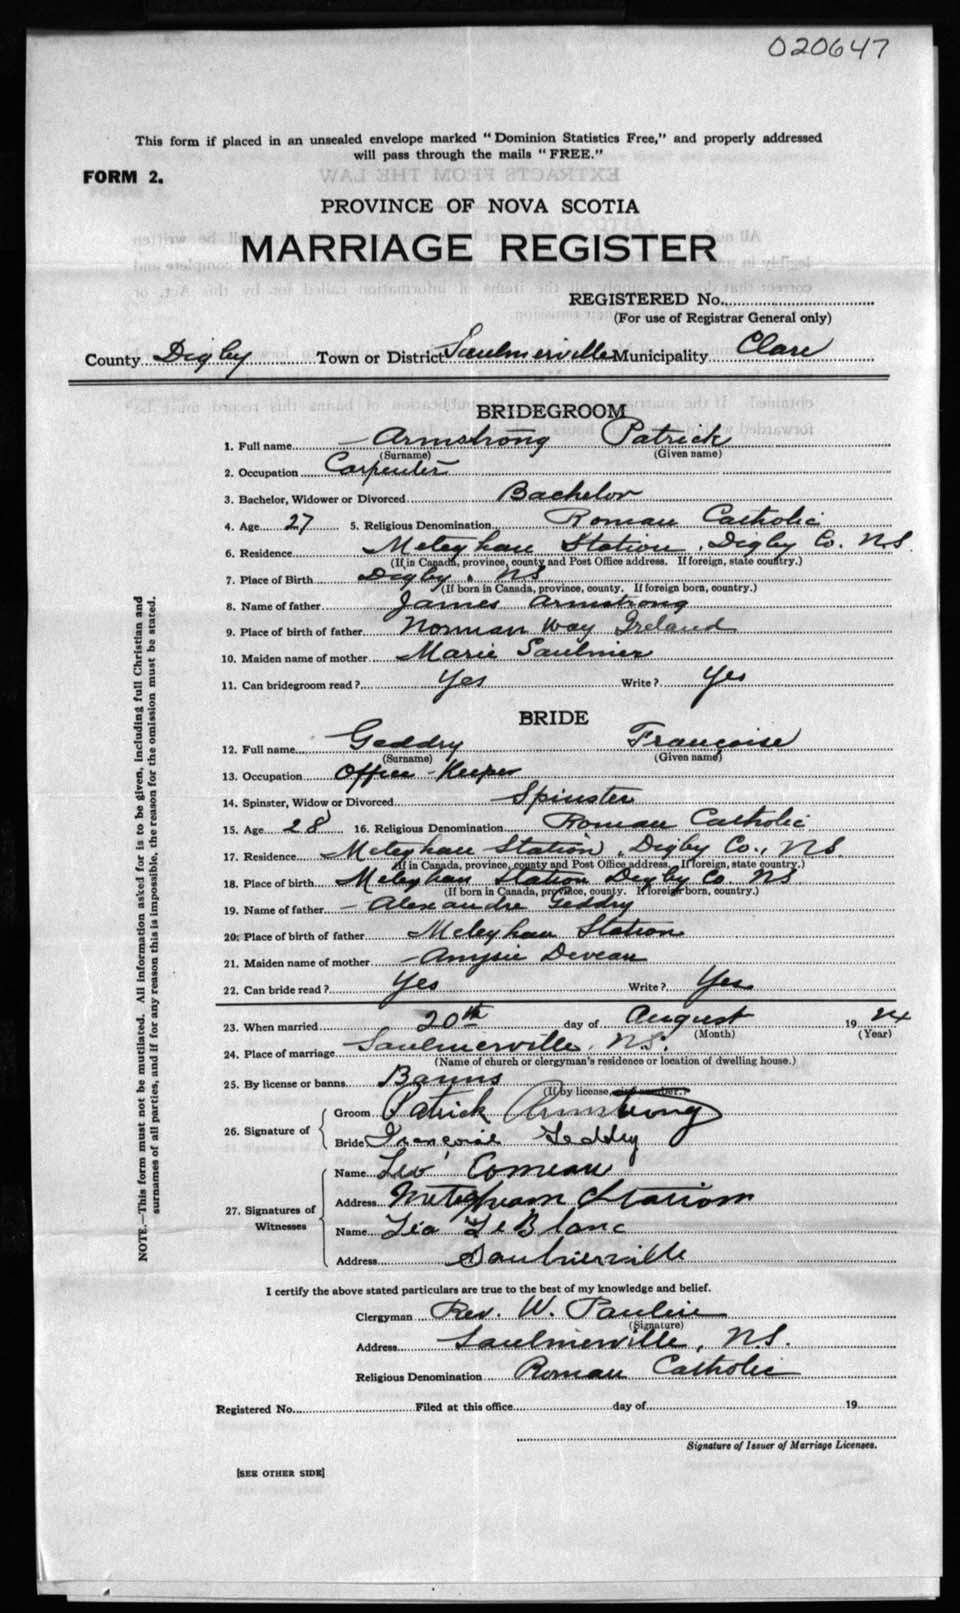 020647
This form if placed in an unsealed envelope marked "Dominion Statistics Free," and properly addressed
will pass through the mails "FREE."
FORM 2.
PROVINCE OF NOVA SCOTIA
MARRIAGE REGISTER
REGISTERED No.
(For use of Registrar General only)
County Digby Town or District Saulnierville Municipality Clare
BRIDEGROOM
1. Full name Armstrong Patrick
(Surname) (Given name)
2. Occupation Carpenter
3. Bachelor, Widower or Divorced Bachelor
4. Age 27 5. Religious Denomination Roman Catholic
6. Residence Meteghan Station, Digby Co. N.S.
(If in Canada, province, county and Post Office address. If foreign, state country.)
7. Place of Birth Digby, NS
(If born in Canada, province, county. If foreign born, country.)
8. Name of father James Armstrong
9. Place of birth of father Norman Way Ireland
10. Maiden name of mother Marie Saulnier
11. Can bridegroom read? Yes Write? Yes
BRIDE
12. Full name Geddry Françoise
(Surname) (Given name)
13. Occupation Office-Keeper
14. Spinster, Widow or Divorced Spinster
15. Age 28 16. Religious Denomination Roman Catholic
17. Residence Meteghan Station, Digby Co., NS
(If in Canada, province, county and Post Office address. If foreign, state country.)
18. Place of birth Meteghan Station Digby Co. NS
(If born in Canada, province, county. If foreign born, country.)
19. Name of father Alexandre Geddry
20. Place of birth of father Meteghan Station
21. Maiden name of mother Deveau
22. Can bride read? Yes Write? Yes
23. When married 20th day of August 1924
(Month) (Year)
24. Place of marriage Saulnierville, N.S.
(Name of church or clergyman's residence or location of dwelling house.)
25. By license or banns Banns
(If by license, give number.)
26. Signature of Groom Patrick Armstrong
Bride Françoise Geddry
27. Signatures of Witnesses
Name Leo Comeau
Address Meteghan Station
Name Léa LeBlanc
Address Saulnierville
I certify the above stated particulars are true to the best of my knowledge and belief.
Clergyman Rev. W. Pauline
(Signature)
Address Saulnierville, N.S.
Religious Denomination Roman Catholic
Registered No. Filed at this office day of 19
Signature of Issuer of Marriage Licenses.
[SEE OTHER SIDE]
NOTE.—This form must not be mutilated. All information asked for is to be given, including full Christian and
surnames of all parties, and if for any reason this is impossible, the reason for the omission must be stated.